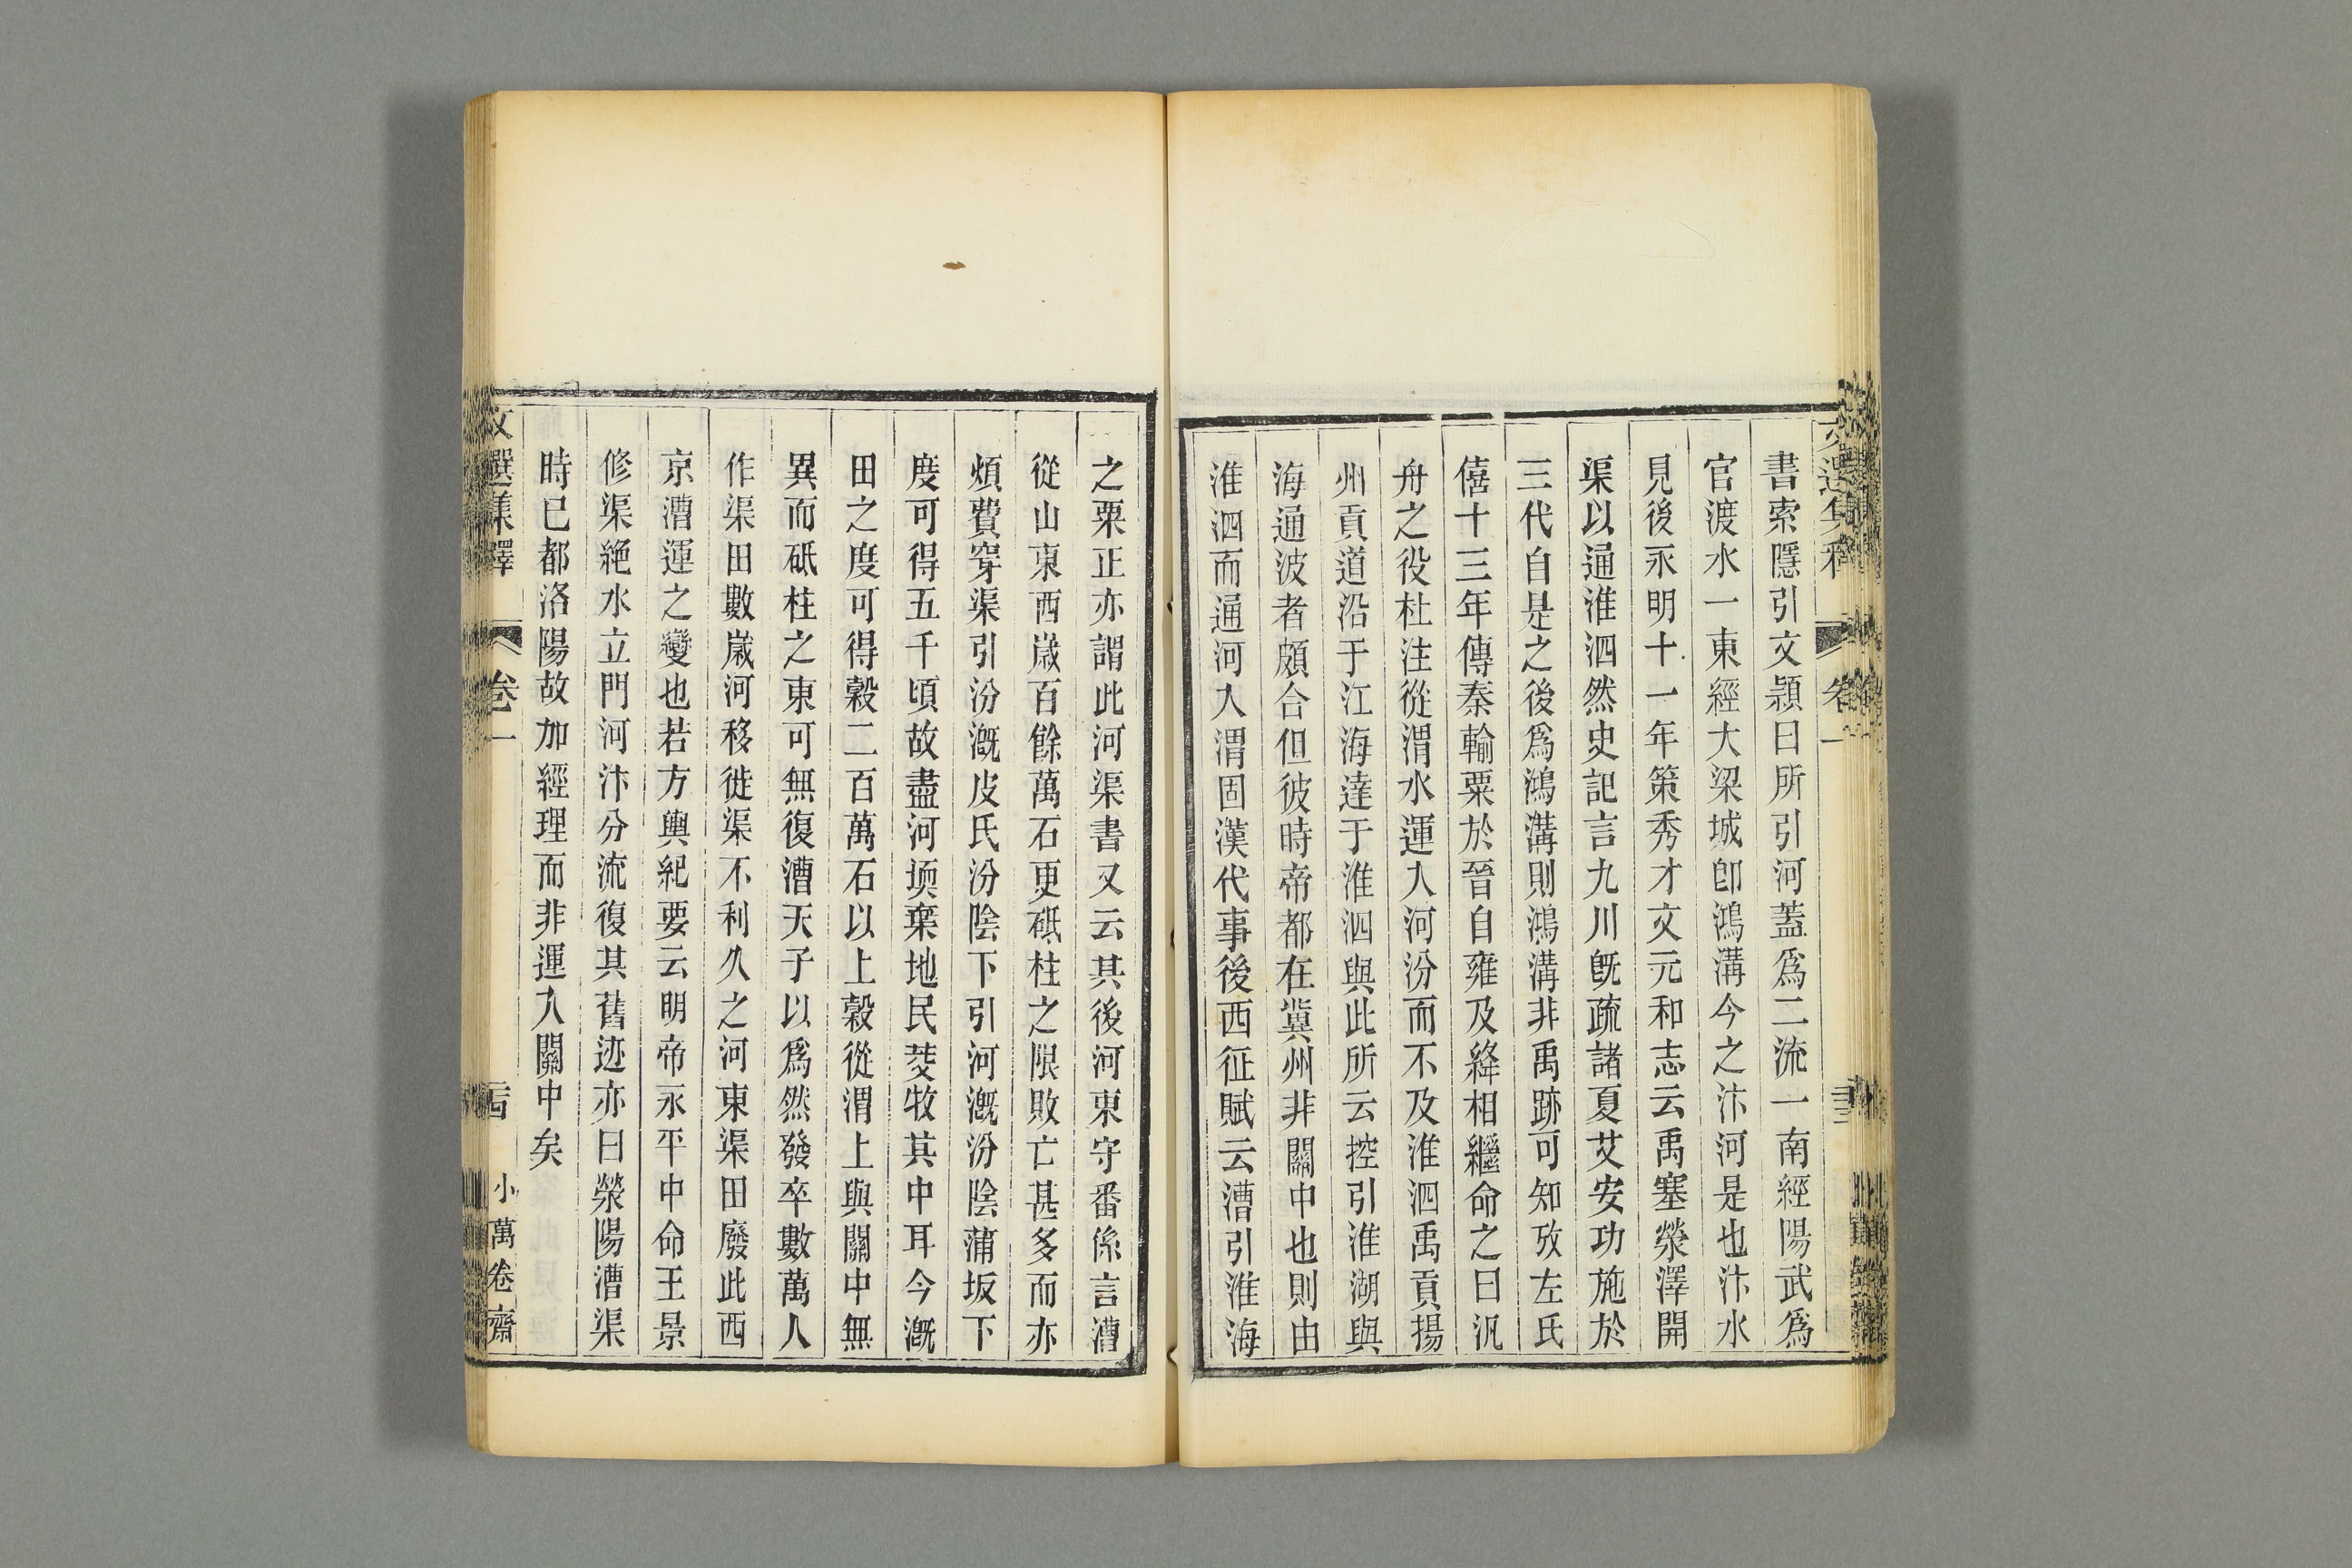 書索隱引文潁曰所引河蓋爲二流一南經陽武爲
官渡水一東經大梁城卽鴻溝今之汴河是也汴水
見後永明十一年策秀才文元和志云禹塞滎澤開
渠以通淮泗然史記言九川旣疏諸夏艾安功施於
三代自是之後爲鴻溝則鴻溝非禹跡可知攷左氏
僖十三年傳秦輸粟於晉自雍及絳相繼命之曰汎
舟之役杜注從渭水運入河汾而不及淮泗禹貢揚
州貢道沿于江海達于淮泗與此所云控引淮湖與
海通波者頗合但彼時帝都在冀州非關中也則由
淮泗而通河入渭固漢代事後西征賦云漕引淮海
之粟正亦謂此河渠書又云其後河東守番係言漕
從山東西歲百餘萬石更砥柱之限敗亡甚多而亦
煩費穿渠引汾漑皮氏汾陰下引河漑汾陰蒲坂下
度可得五千頃故盡河堧棄地民茭牧其中耳今漑
田之度可得穀二百萬石以上穀從渭上與關中無
異而砥柱之東可無復漕天子以爲然發卒數萬人
作渠田數歲河移徙渠不利久之河東渠田廢此西
京漕運之變也若方輿紀要云明帝永平中命王景
修渠絕水立門河汴分流復其舊迹亦曰滎陽漕渠
時已都洛陽故加經理而非運入關中矣
文選集釋 卷一 小萬卷齋